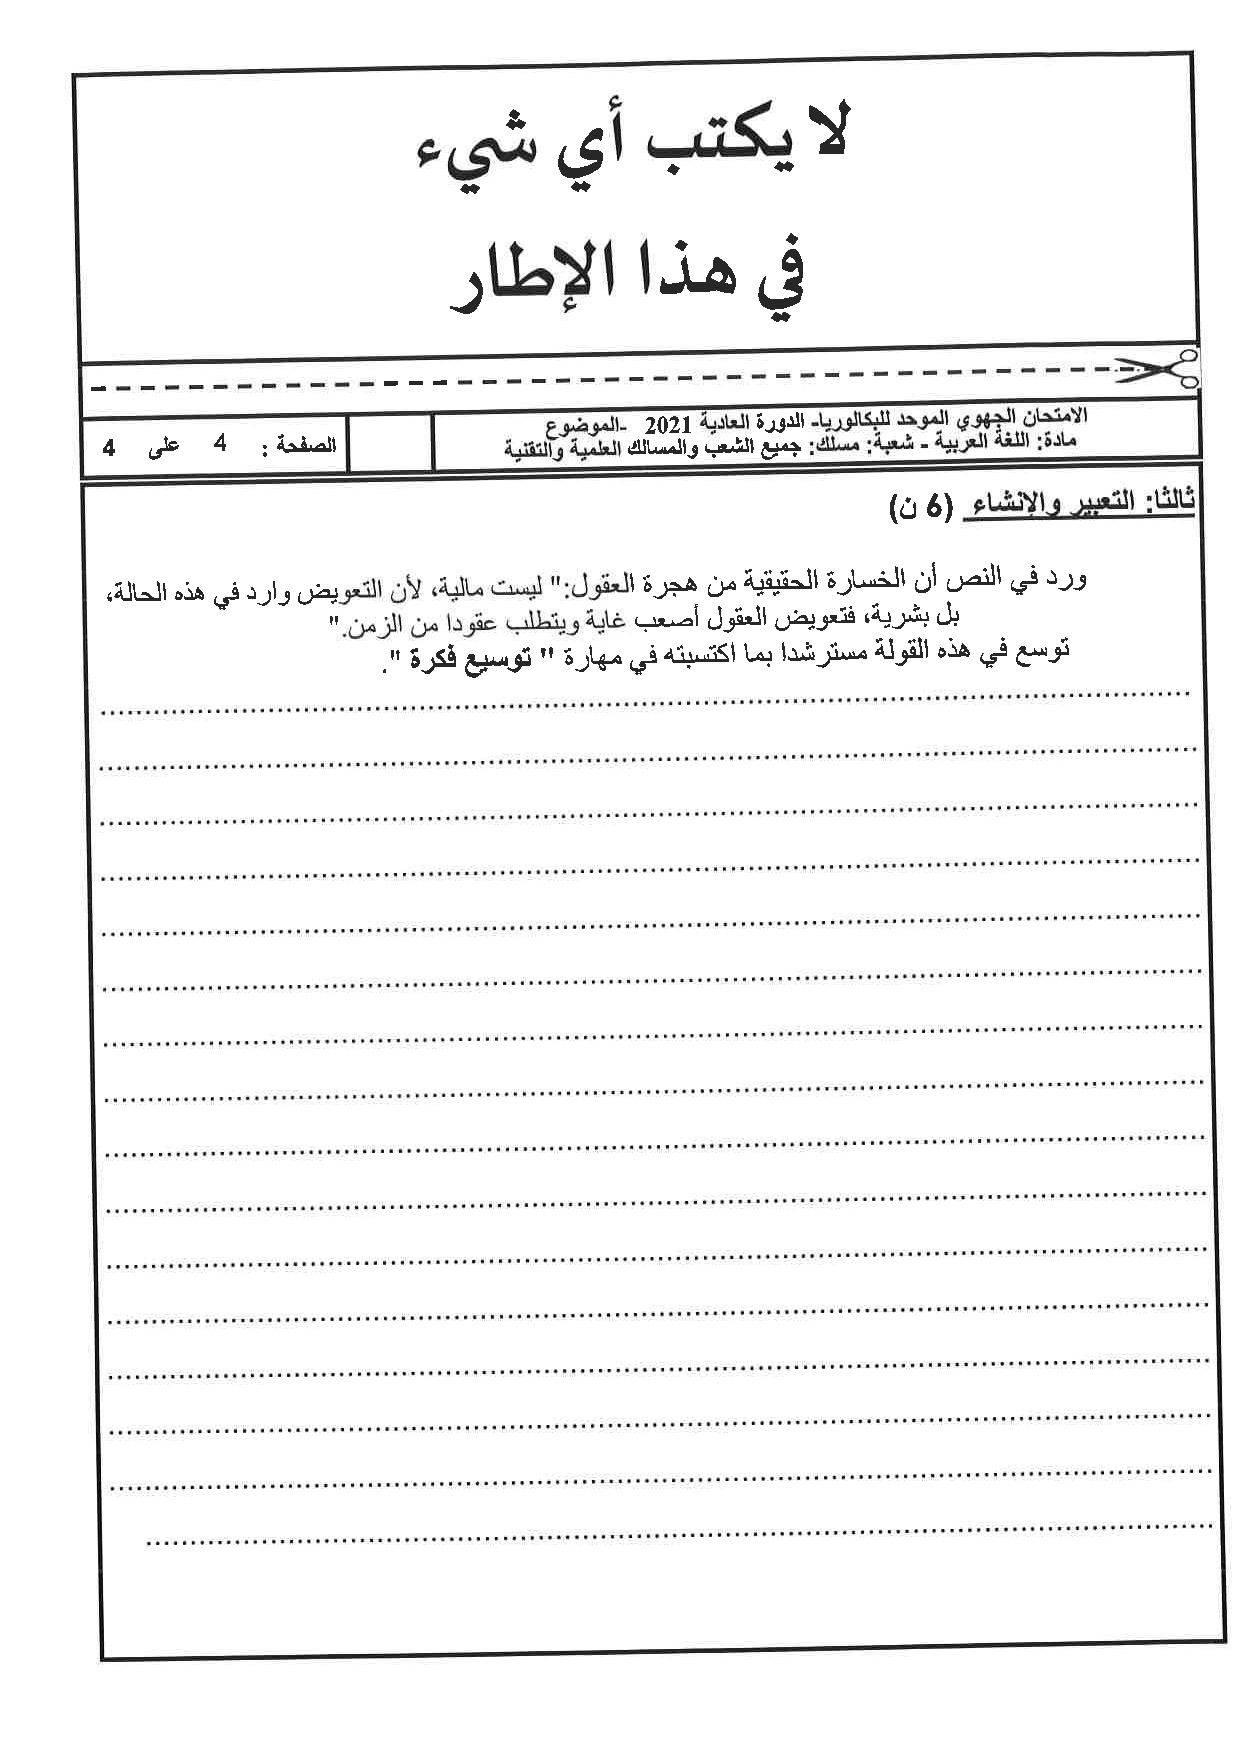 لا يكتب أي شيء
في هذا الإطار
الامتحان الجهوي الموحد للبكالوريا- الدورة العادية 2021 -الموضوع
مادة: اللغة العربية - شعبة: مسلك: جميع الشعب والمسالك العلمية والتقنية
الصفحة : 4 على 4
ثالثا: التعبير والإنشاء (6 ن)
ورد في النص أن الخسارة الحقيقية من هجرة العقول:" ليست مالية، لأن التعويض وارد في هذه الحالة،
بل بشرية، فتعويض العقول أصعب غاية ويتطلب عقودا من الزمن."
توسع في هذه القولة مسترشدا بما اكتسبته في مهارة " توسيع فكرة ".